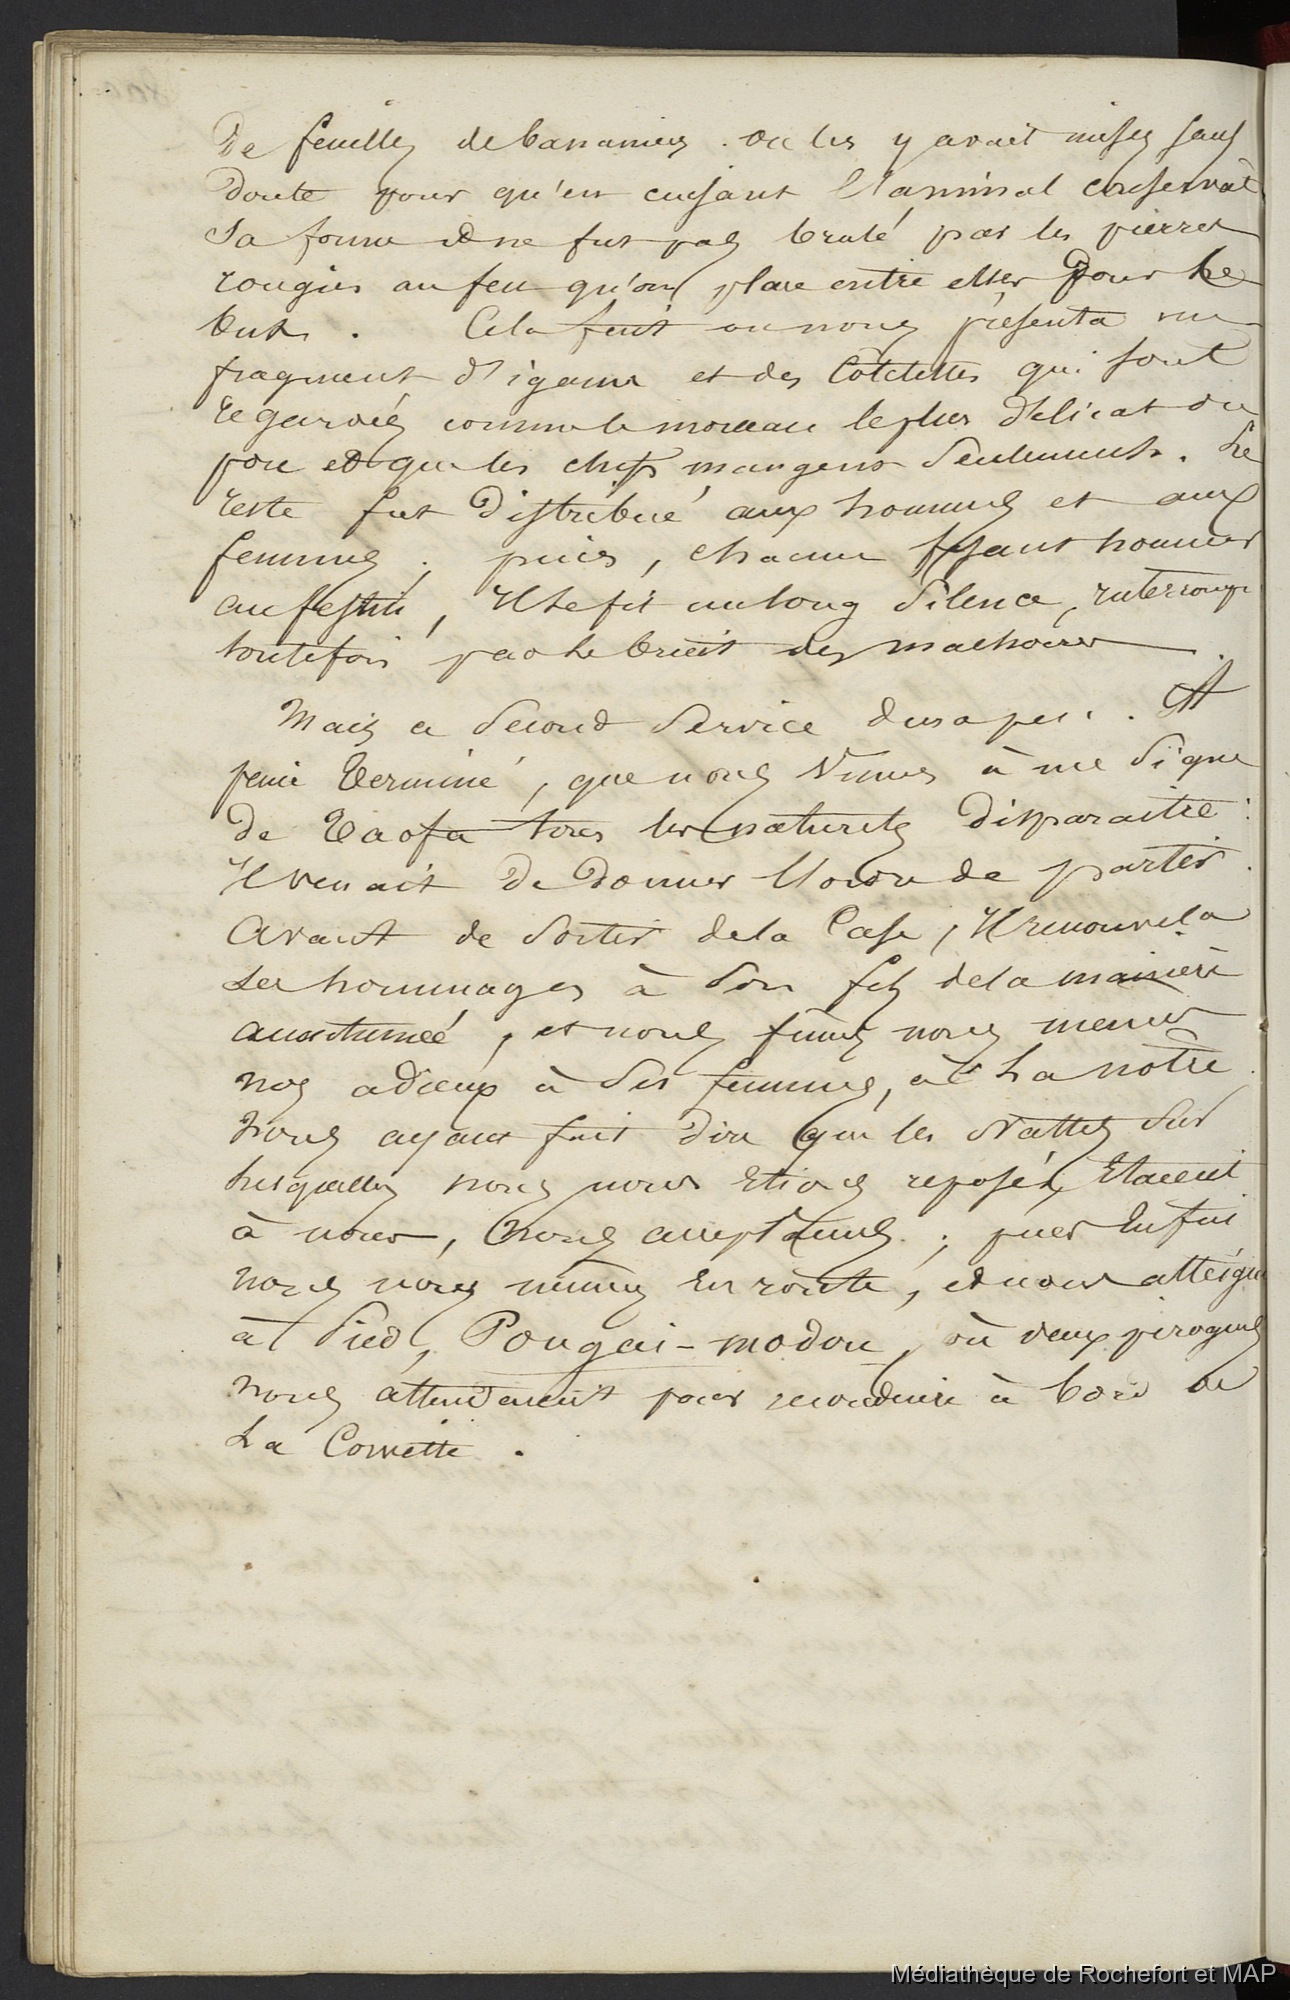 De feuilles de bananiers. On les y avait mises sans
doute pour qu'en cuisant l'animal conservat
sa forme et ne fut pas brulé par les pierres
rougies au feu qu'on place entre elles pour ce
but. Cela fait on nous présenta un
fragment d'igame et des Cotelettes qui sont
regardées comme le morceau le plus délicat du
porc et que les chefs mangent seulement. Le
reste fut distribué aux hommes et aux
femmes ; puis, chacun fesant honneur
au festin, Il se fit un long silence, interrompu
toutefois par le bruit des machoires.
Mais ce second service dura peu. A
peine terminé, que nous vimes à un signe
de Taofa tous les naturels disparaitre :
Il venait de donner l'ordre de partir.
Avant de sortir de la Case, Il renouvela
ses hommages à son fils de la manière
accoutumée, et nous fumes nous mêmes
nos adieux à ses femmes, à la notre.
Nous ayant fait dire que les Nattes sur
lesquelles nous nous etions reposés, Etaient
à nous, nous acceptames ; puis Enfin
nous nous mimes En route, et nous atteign
à Pied, Pongai-modou, où deux pirogues
nous attendaient pour reconduire à bord de
La Corvette.
Médiathèque de Rochefort et MAP